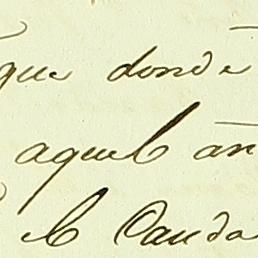 que donde
aquel an
el Canda